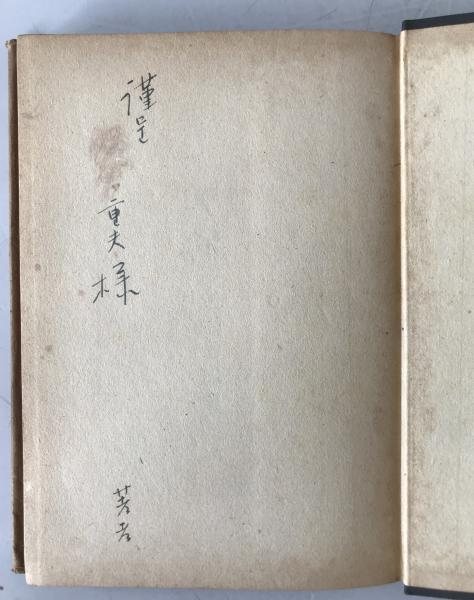 謹呈
重夫様
著者